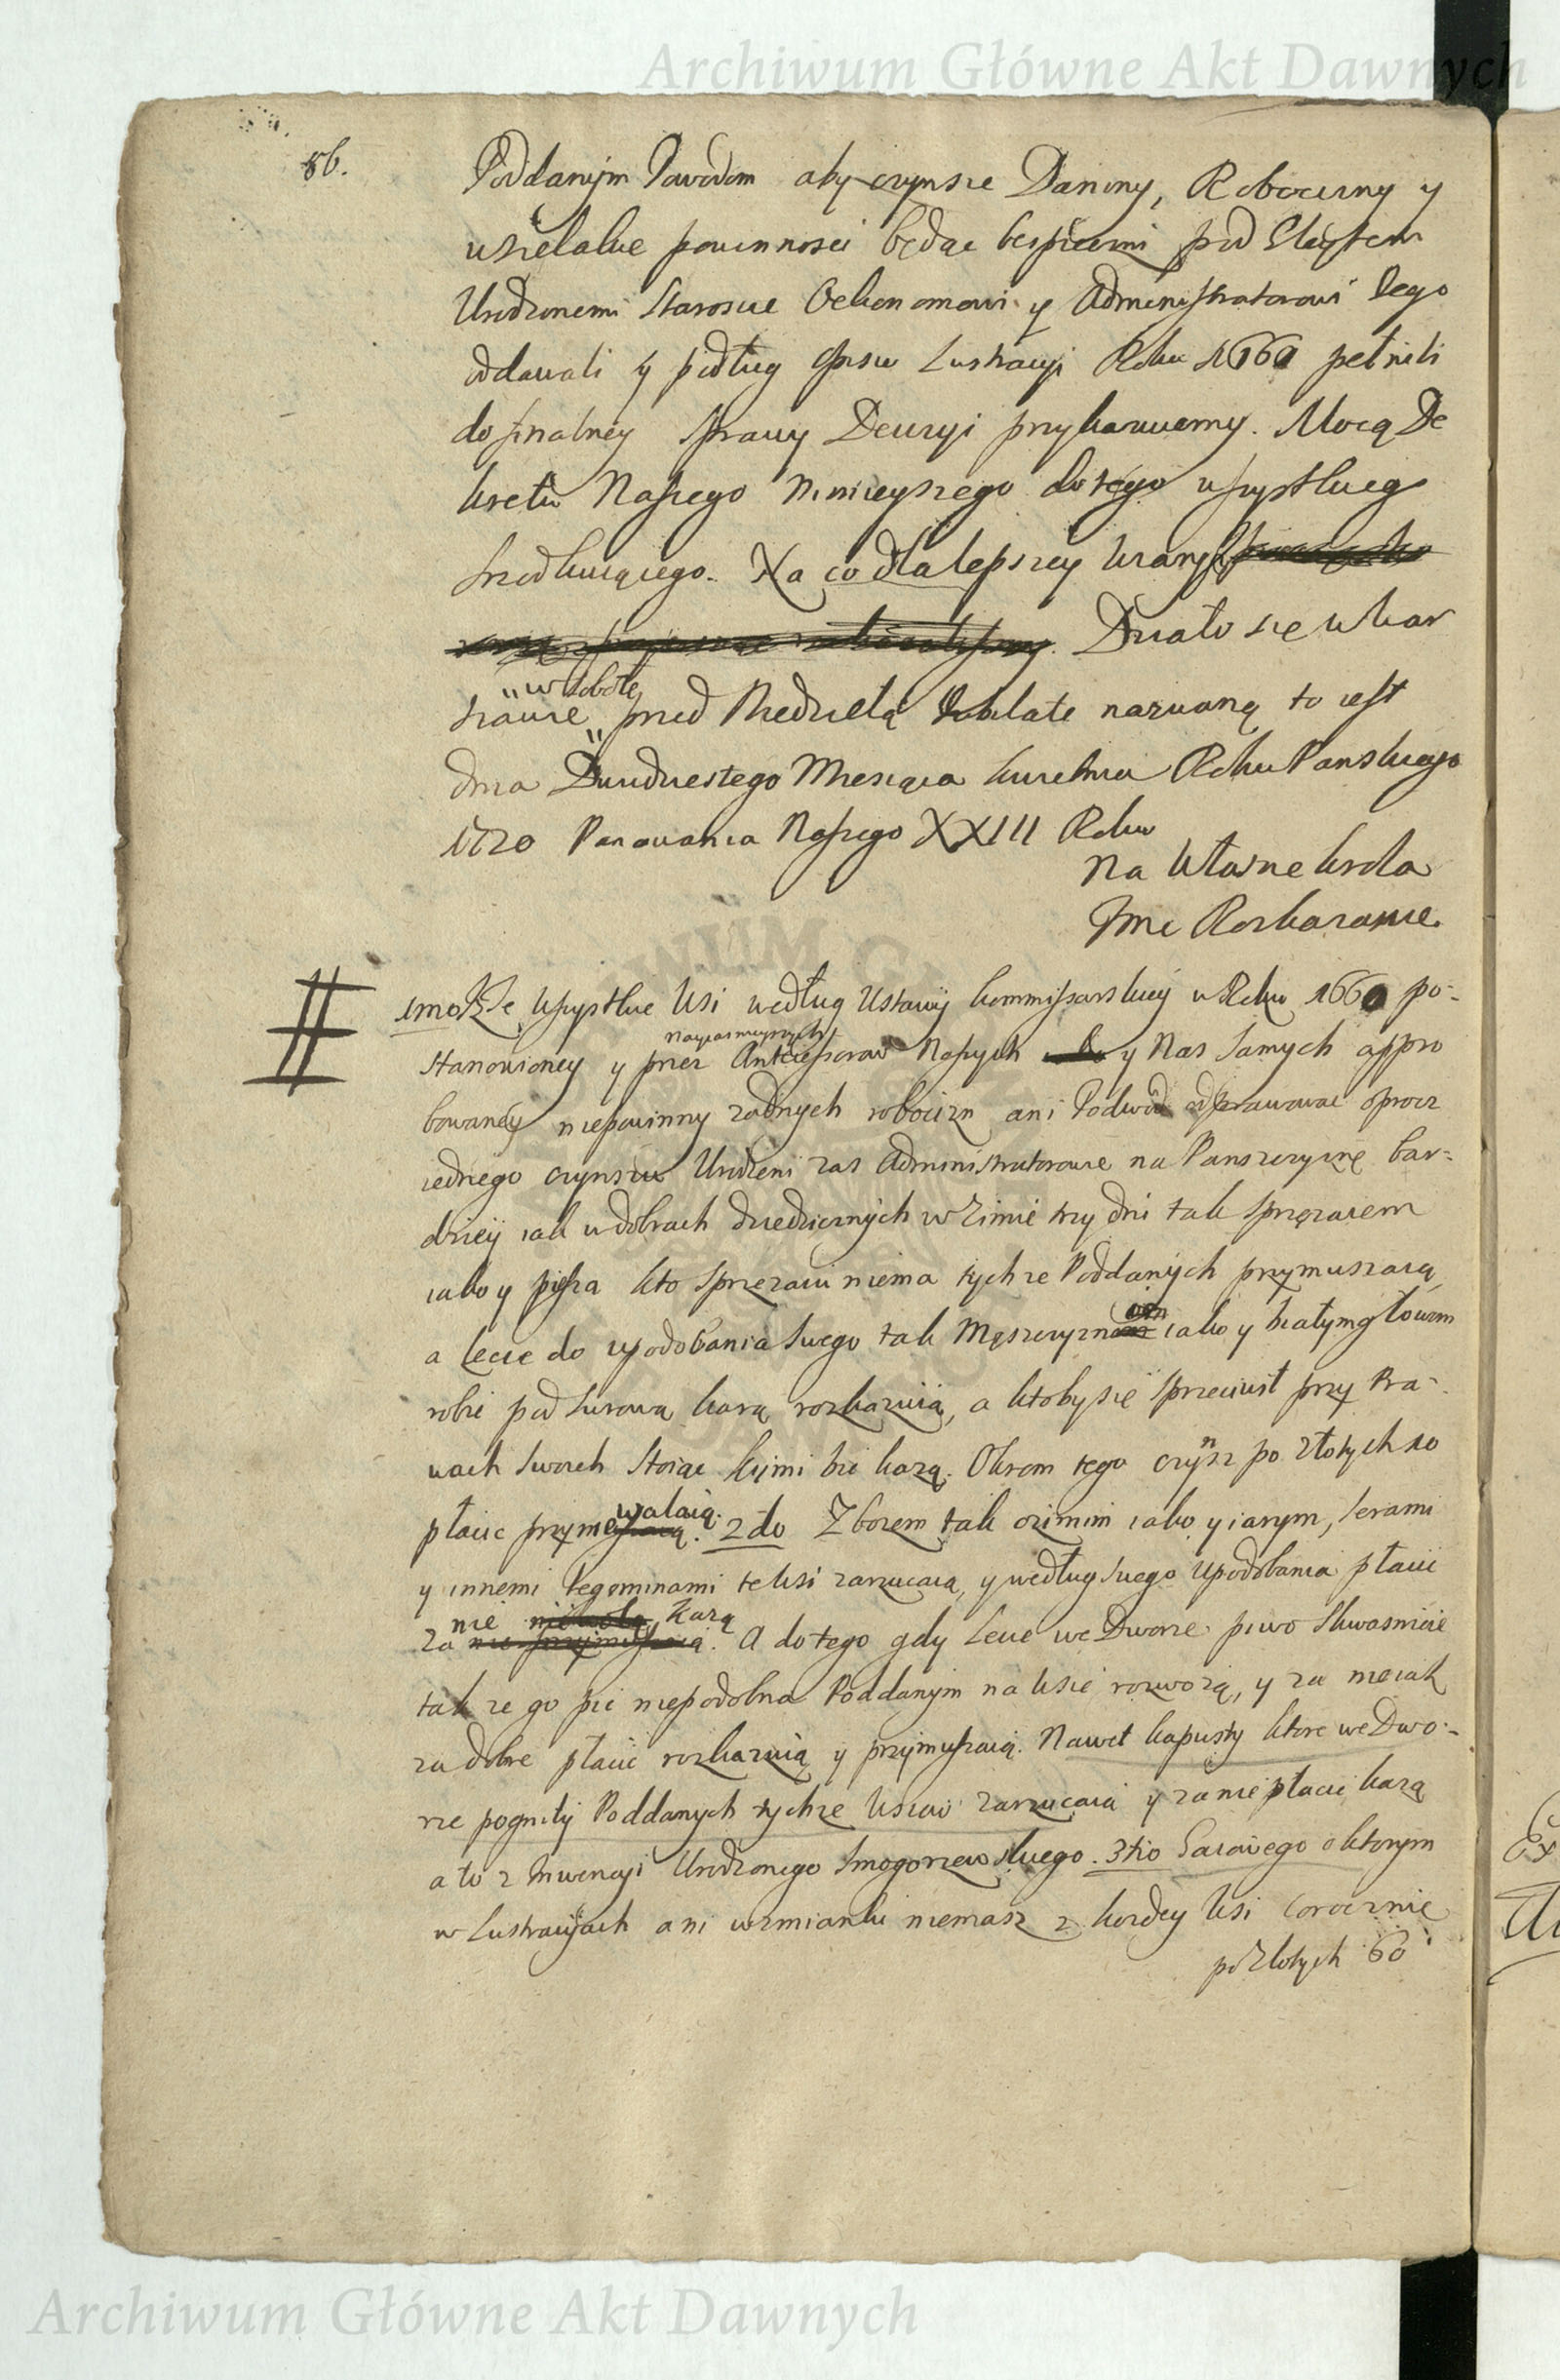 Archiwum Główne Akt Dawnych
56.
Poddanym Powodom aby czynsze Daniny, Robocizny y
wszelakie powinnosci będąc bespiecznni pod Gleytem
Urodzonemi Staroscie Oekonomowi y Administratorowi Tego
oddawali y podług Opisu Lustracyi Roku 1660 pełnili
do finalney Sprawy Decyzyi przykazuiemy. Mocą De
kretu Naszego Ninieyszego do tego wszystkieg
srzodkuiącego. Na co dla lepszey wiary
Działo się w War
szawie przed Niedzielą Jubilate nazwaną to iest
"w Sobotę
dnia Dwudziestego Miesiąca Kwietnia Roku Panskiego
1720 Panowania Naszego XXIII Roku
Na Własne Krola
Jmc Rozkazanie
# 1mo Ze Wszystkie Wsi według Ustawy Kommissarskiey w Roku 1660 po-
stanowioney y przez Antecessorow Naszych y Nas Samych appro
Nayiasnieyszych
bowaney niepowinny zadnych robocizn ani Podwod odprawowac oprocz
iednego czynszu Urodzeni zas Administratorowie na Panszczyznę bar-
dziey iak w dobrach dziedzicznych w Zimie trzy dni tak sprzęzaiem
iako y pieszo kto sprzezaiu niema tychze Poddanych przymuszaią,
a lecie do upodobania swego tak Męszczyznom iako y białymgłowom
robic pod surową karą rozkazuią, a ktoby się sprzeciwił przy Pra-
wach Swoich Stoiąc kiymi bic każą. Okrom tego czynsz po złotych 10
płacic przymewalaią. 2do Zbozem tak ozimim iako y iarym, Serami
y innemi Legominami te Wsi zarzucaią, y według swego upodobania płacic
za nie każą. A do tego gdy Lecie we Dworze piwo Skwasnieie
tak ze go pic niepodobna Poddanym na Wsie rozwożą, y za nie iak
za dobre płacic rozkazuią y przymuszaią. Nawet kapusty ktore we Dwo-
rze pogniły Poddanych tychze Wsiow zarzucaią y za nie płacic każą
a to z Inwencyi Urodzonego Smogorzewskiego. 3tio Gaiowego o ktorym
w Lustracyiach ani wzmianki niemasz z kozdey Wsi corocznie
po Złotych 60
Archiwum Główne Akt Dawnych